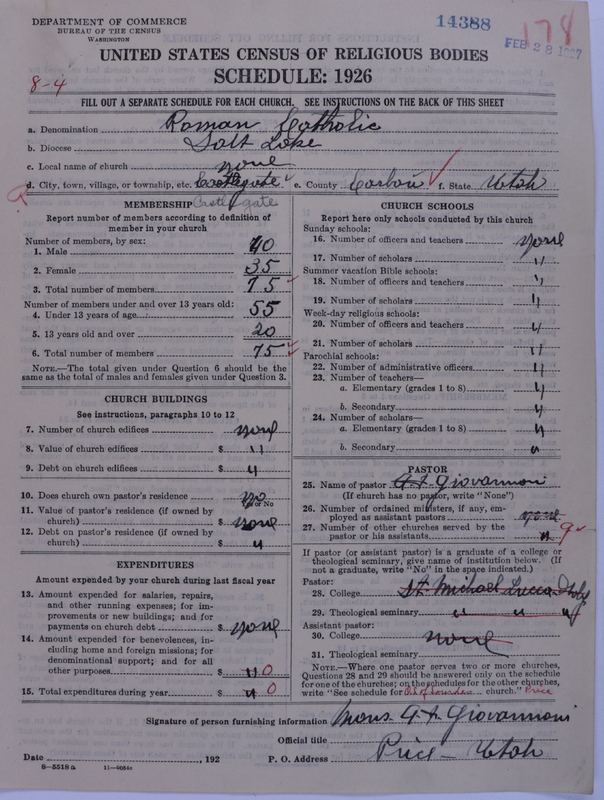 DEPARTMENT OF COMMERCE
BUREAU OF THE CENSUS
WASHINGTON
14388
178
FEB 28 1927
UNITED STATES CENSUS OF RELIGIOUS BODIES
SCHEDULE: 1926
8-4
FILL OUT A SEPARATE SCHEDULE FOR EACH CHURCH. SEE INSTRUCTIONS ON THE BACK OF THIS SHEET
a. Denomination Roman Catholic
b. Diocese Salt Lake
c. Local name of church none
d. City, town, village, or township, etc. Castlegate e. County Carbon f. State Utah
Castle gate
MEMBERSHIP
Report number of members according to definition of
member in your church
Number of members, by sex:
1. Male 40
2. Female 35
3. Total number of members 75
Number of members under and over 13 years old:
4. Under 13 years of age 55
5. 13 years old and over 20
6. Total number of members 75
NOTE.—The total given under Question 6 should be
same as the total of males and females given under Question 3.
CHURCH BUILDINGS
See instructions, paragraphs 10 to 12
7. Number of church edifices none
8. Value of church edifices $ "
9. Debt on church edifices $ "
10. Does church own pastor's residence no
Yes or No
11. Value of pastor's residence (if owned by
church) $ none
12. Debt on pastor's residence (if owned by
church) $ "
EXPENDITURES
Amount expended by your church during last fiscal year
13. Amount expended for salaries, repairs,
and other running expenses; for im-
provements or new buildings; and for
payments on church debt $ none
14. Amount expended for benevolences, in-
cluding home and foreign missions; for
denominational support; and for all
other purposes $ " 0
15. Total expenditures during year $ " 0
CHURCH SCHOOLS
Report here only schools conducted by this church
Sunday schools:
16. Number of officers and teachers none
17. Number of scholars "
Summer vacation Bible schools:
18. Number of officers and teachers "
19. Number of scholars "
Week-day religious schools:
20. Number of officers and teachers "
21. Number of scholars "
Parochial schools:
22. Number of administrative officers "
23. Number of teachers—
a. Elementary (grades 1 to 8) "
b. Secondary "
24. Number of scholars—
a. Elementary (grades 1 to 8) "
b. Secondary "
PASTOR
25. Name of pastor Giovannoni
(If church has no pastor, write "None")
26. Number of ordained ministers, if any, em-
ployed as assistant pastors none
27. Number of other churches served by the
pastor or his assistants " 9
If pastor (or assistant pastor) is a graduate of a college or
theological seminary, give name of institution below. (If
not a graduate, write "No" in the space indicated.)
Pastor:
28. College St. Michael Lucca Italy
29. Theological seminary " " "
Assistant pastor:
30. College none
31. Theological seminary
NOTE.—Where one pastor serves two or more churches,
Questions 28 and 29 should be answered only on the schedule
for one of the churches; on the schedules for the other churches,
write "See schedule for church." Price
Signature of person furnishing information Mons. Giovannoni
Official title
Date , 192 P. O. Address Price - Utah
8—5518 a